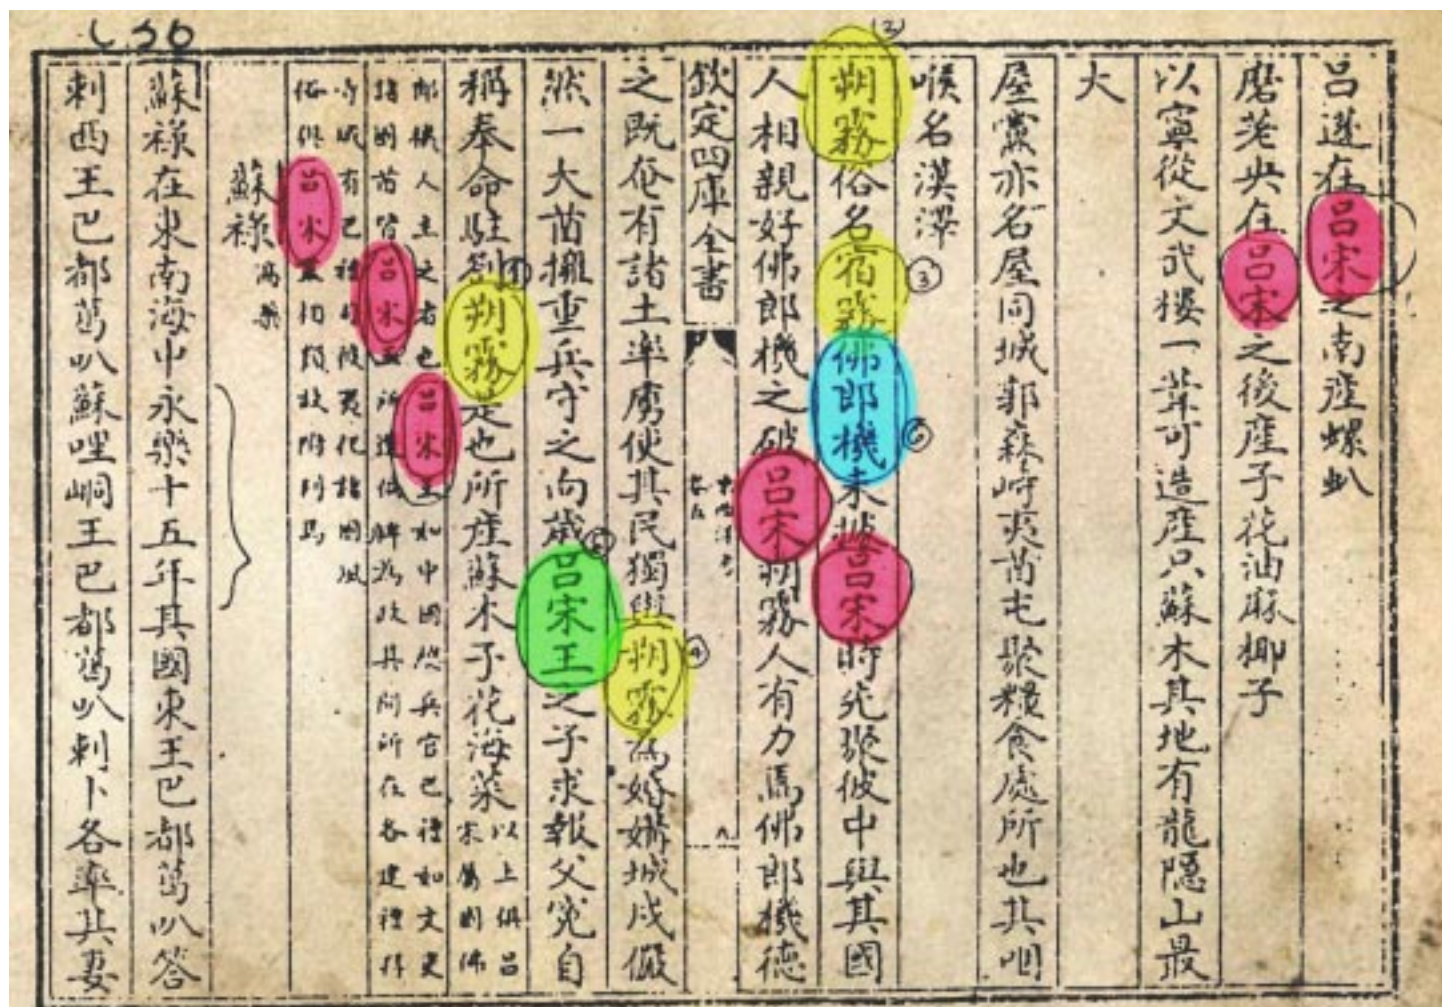 呂蓬在呂宋之南產螺
磨荖央在呂宋之後產子花油麻椰子
以寧從文武樓一葦可造產只蘇木其地有龍隱山最
大
屋黨亦名屋同城郭森峙夷酋屯聚糧食處所也其咽
喉名漢澤
朔霧俗名宿霧佛郎機未據呂宋時先聚彼中與其國
人相親好佛郎機之破呂宋朔霧人有力焉佛郎機德
欽定四庫全書
東西洋考
卷五
九
之既奄有諸土率虜使其民獨與朔霧為婚媾城戍儼
然一大酋擁重兵守之向歲呂宋王之子求報父冤自
稱奉命駐劄朔霧是也所產蘇木子花海菜以上俱呂
宋屬國佛
郎機人主之者也呂宋王如中國總兵官巴禮如文吏
諸國酋皆呂宋王所遣俾為政其間所在各建禮拜
寺咸有巴禮司彼夷化諸國風
俗俱呂宋相類故附訂焉
蘇祿高藥
蘇祿在東南海中永樂十五年其國東王巴都葛叭答
剌西王巴都葛叭蘇哩峒王巴都葛叭剌卜各率其妻